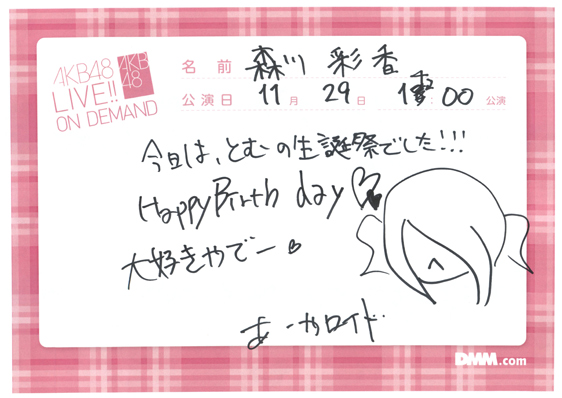 AKB48
LIVE!!
ON DEMAND
AKB
48
名前 森川 彩香
公演日 11月 29日 :00 公演
今日は、とむの生誕祭でした!!!
HappyBirth day
大好きやでー
あーやロイド
DMM.com